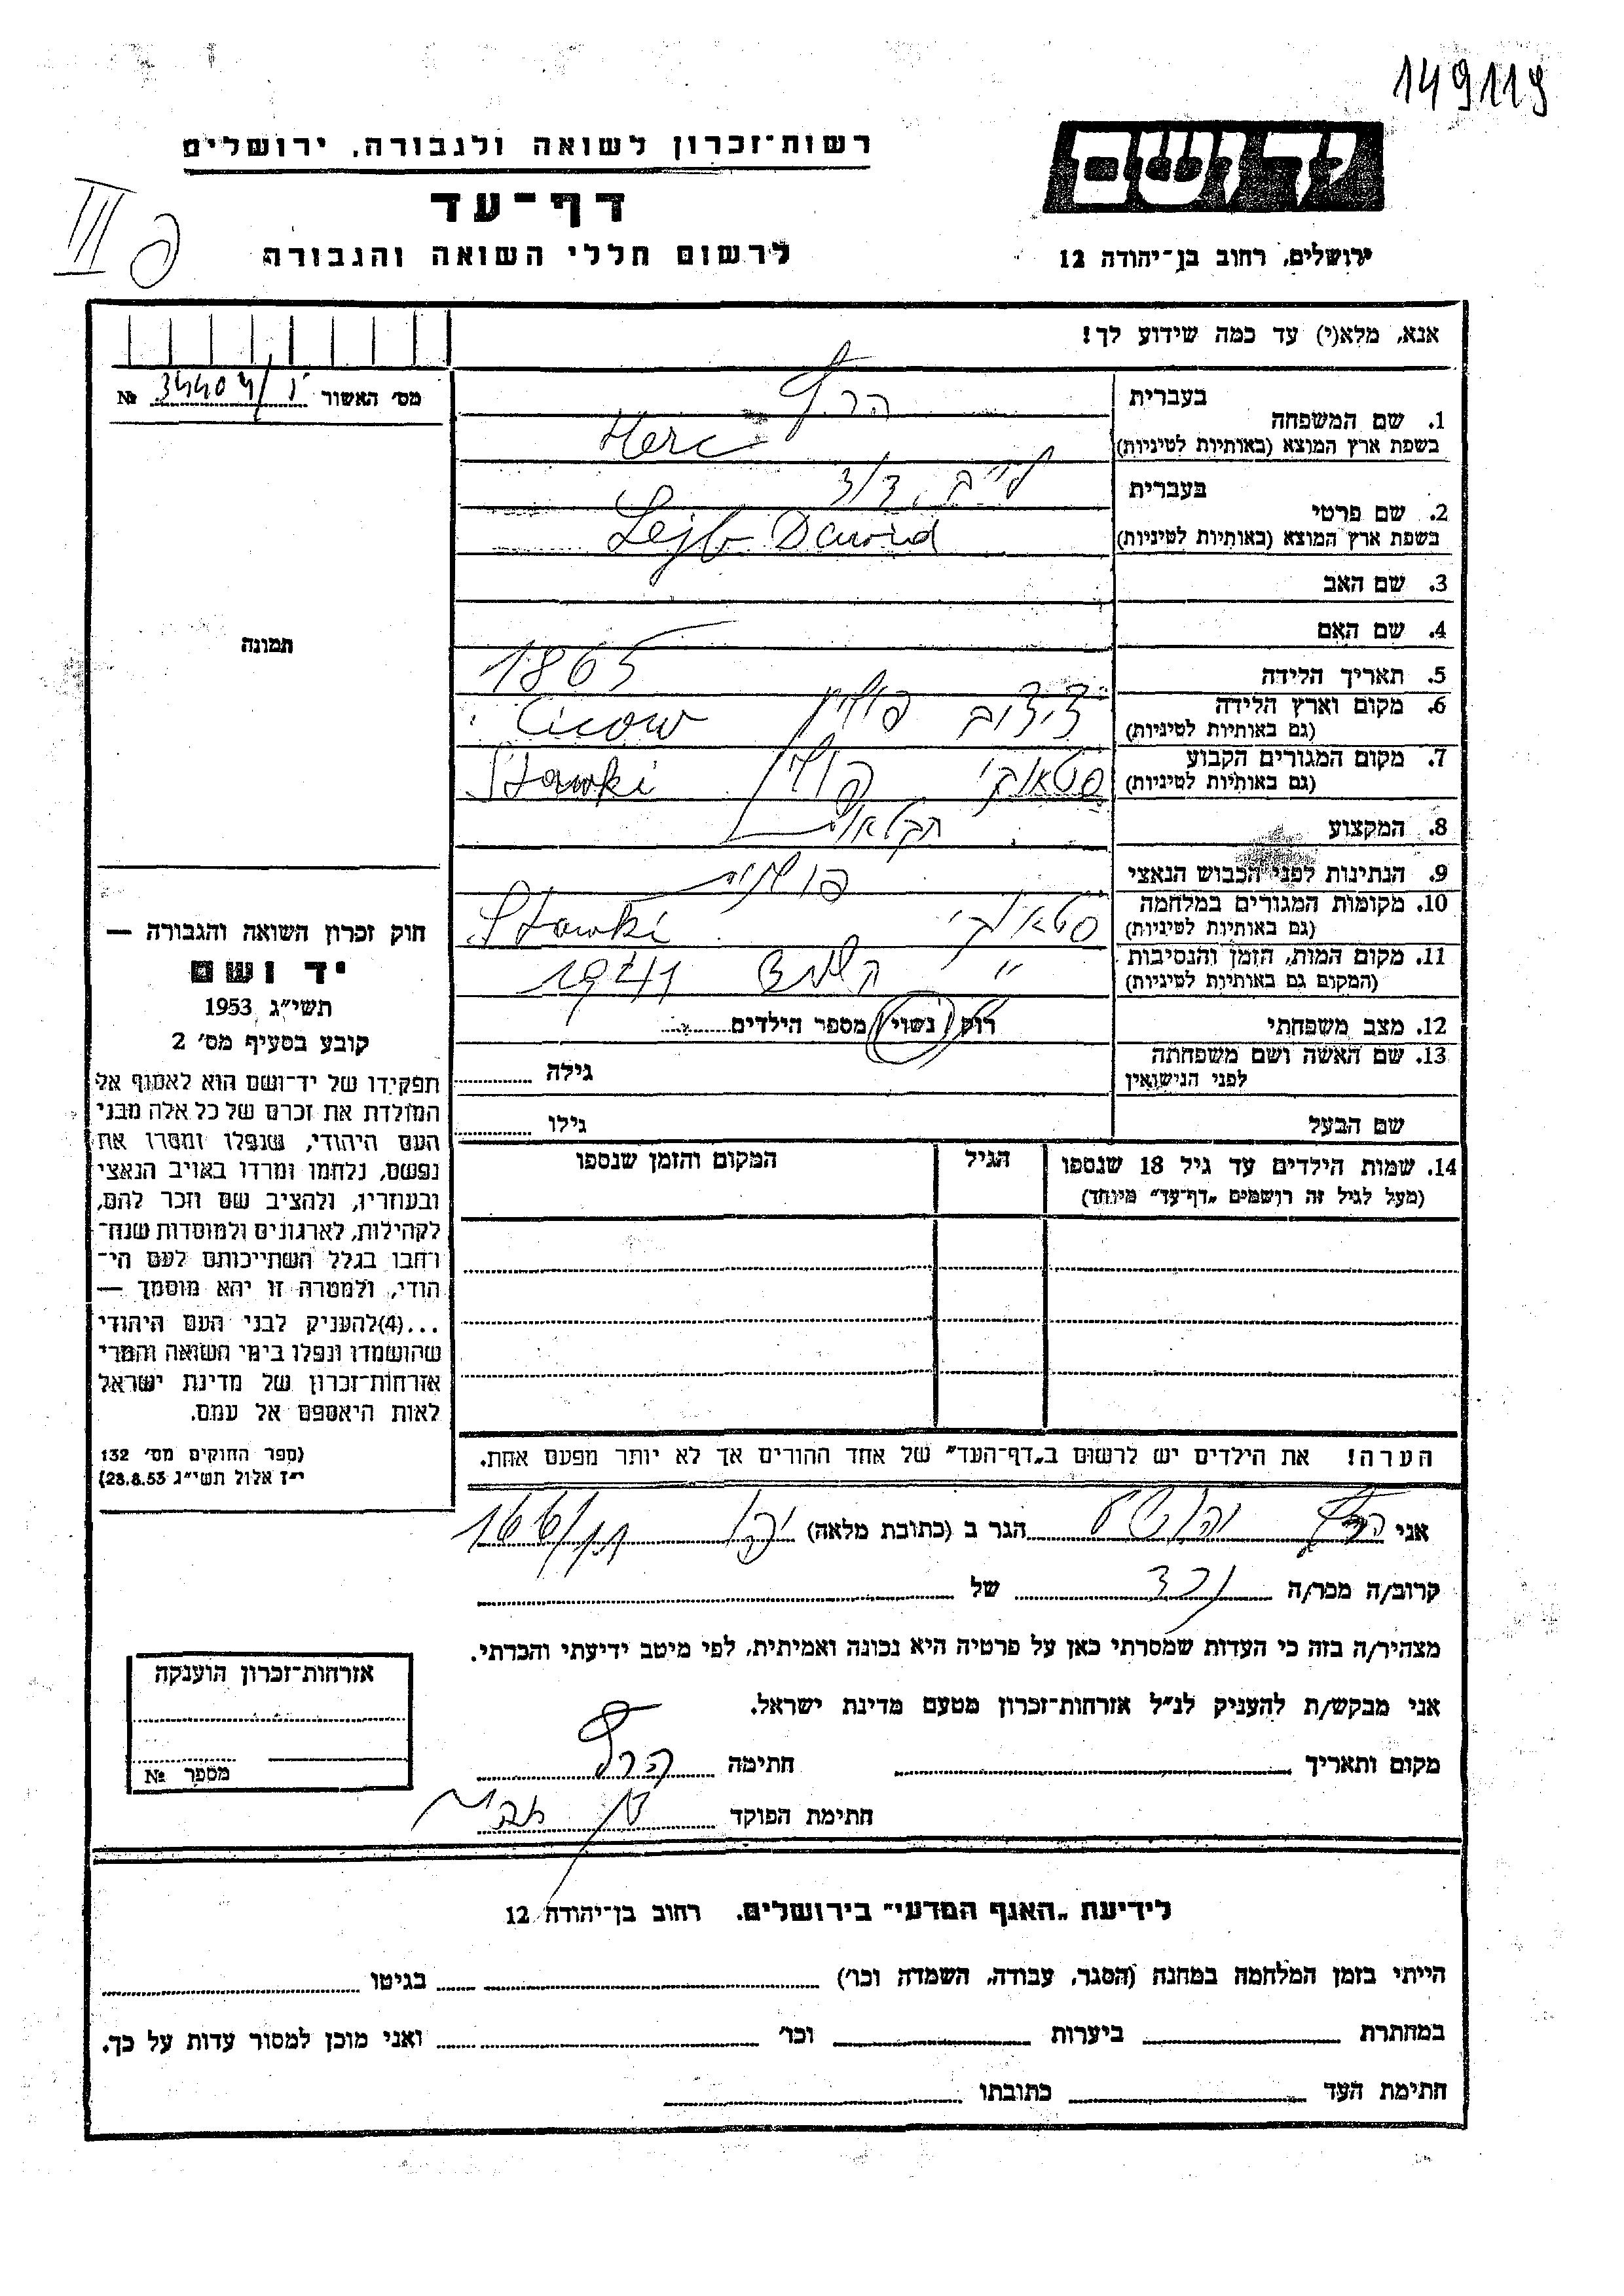 149119
יד ושם
רשות־זכרון לשואה ולגבורה, ירושלים
דף־עד
לרשום חללי השואה והגבורה
ירושלים, רחוב בן־יהודה 12
III
אנא, מלא(י) עד כמה שידוע לך!
מס׳ האשור №
1. שם המשפחה
בעברית
בשפת ארץ המוצא (באותיות לטיניות) Herc
2. שם פרטי
בעברית לייב, דוד
בשפת ארץ המוצא (באותיות לטיניות) Lejb Dawid
3. שם האב
4. שם האם
5. תאריך הלידה 1865
6. מקום וארץ הלידה פולין Cicow
(גם באותיות לטיניות)
7. מקום המגורים הקבוע סטאוקי פולין Stawki
(גם באותיות לטיניות)
8. המקצוע חקלאי
9. הנתינות לפני הכבוש הנאצי פולנית
10. מקומות המגורים במלחמה סטאוקי Stawki
(גם באותיות לטיניות)
11. מקום המות, הזמן והנסיבות 1941
(המקום גם באותיות לטיניות)
12. מצב משפחתי רוק / נשוי / מספר הילדים
13. שם האשה ושם משפחתה גילה
לפני הנישואין
שם הבעל גילו
14. שמות הילדים עד גיל 18 שנספו הגיל המקום והזמן שנספו
(מעל לגיל זה רושמים „דף־עד״ מיוחד)
הערה! את הילדים יש לרשום ב„דף־העד״ של אחד ההורים אך לא יותר מפעם אחת.
תמונה
חוק זכרון השואה והגבורה —
יד ושם
תשי״ג 1953
קובע בסעיף מס׳ 2
תפקידו של יד־ושם הוא לאסוף אל
המולדת את זכרם של כל אלה מבני
העם היהודי, שנפלו ומסרו את
נפשם, נלחמו ומרדו באויב הנאצי
ובעוזריו, ולהציב שם וזכר להם,
לקהילות, לארגונים ולמוסדות שנח־
רחבו בגלל השתייכותם לעם הי־
הודי, ולמטרה זו יהא מוסמך —
...(4)להעניק לבני העם היהודי
שהושמדו ונפלו בימי השואה והמרי
אזרחות־זכרון של מדינת ישראל
לאות היאספם אל עמם.
(ספר החוקים מס׳ 132
י״ז אלול תשי״ג 28.8.53)
אני יהושע הגר ב (כתובת מלאה) 166
קרוב/ה מכר/ה נכד של
מצהיר/ה בזה כי העדות שמסרתי כאן על פרטיה היא נכונה ואמיתית, לפי מיטב ידיעתי והכרתי.
אני מבקש/ת להעניק לנ״ל אזרחות־זכרון מטעם מדינת ישראל.
מקום ותאריך חתימה
חתימת הפוקד
אזרחות־זכרון הוענקה
מספר №
לידיעת „האגף המדעי״ בירושלים. רחוב בן־יהודה 12
הייתי בזמן המלחמה במחנה (הסגר, עבודה, השמדה וכו׳) בגיטו
במחתרת ביערות וכו׳ ואני מוכן למסור עדות על כך.
חתימת העד כתובתו